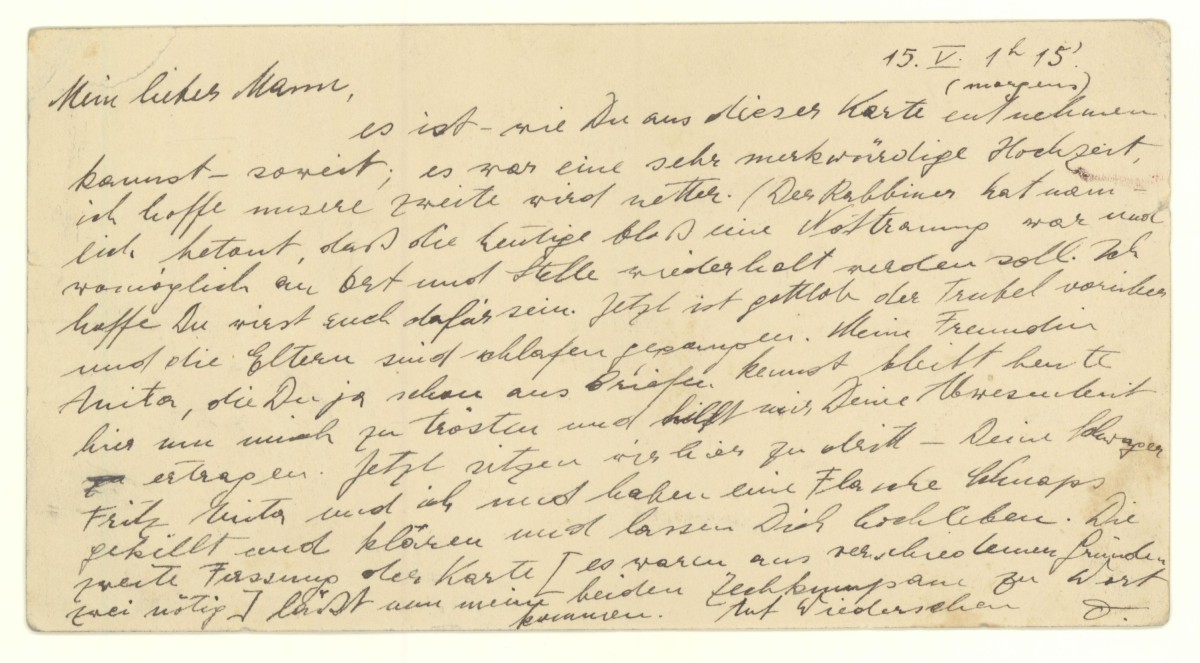 15. V. 1h 15'
(morgens)
Mein lieber Mann,
es ist - wie Du aus dieser Karte entnehmen
kannst - soweit; es war eine sehr merkwürdige Hochzeit,
ich hoffe unsere zweite wird netter. (Der Rabbiner hat näm-
lich betont, daß die heutige bloß eine Nottrauung war und
womöglich an Ort und Stelle wiederholt werden soll. Ich
hoffe Du wirst auch dafür sein. Jetzt ist gottlob der Trubel vorüber
und die Eltern sind schlafen gegangen. Meine Freundin
Anita, die Du ja schon aus Briefen kennst bleibt heute
hier um mich zu trösten und hilft mir Deine Abwesenheit
ertragen. Jetzt sitzen wir hier zu dritt - Deine Schwager
Fritz Anita und ich und haben eine Flasche Schnaps
gekillt und und lassen Dich hochleben. Die
zweite Fassung der Karte [es waren aus verschiedenen Gründen
zwei nötig] läßt nun meine beiden Zechkumpane zu Wort
kommen. Auf Wiedersehen